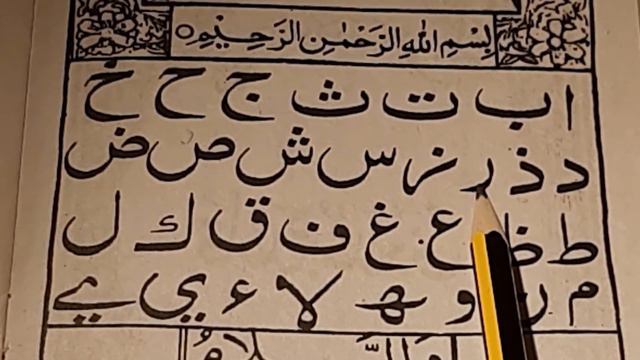 بِسْمِ اللهِ الرَّحْمٰنِ الرَّحِيْمِ
ا ب ت ث ج ح خ
د ذ ر ز س ش ص ض
ط ظ ع غ ف ق ك ل
م ن و ھ لا ء ي ے